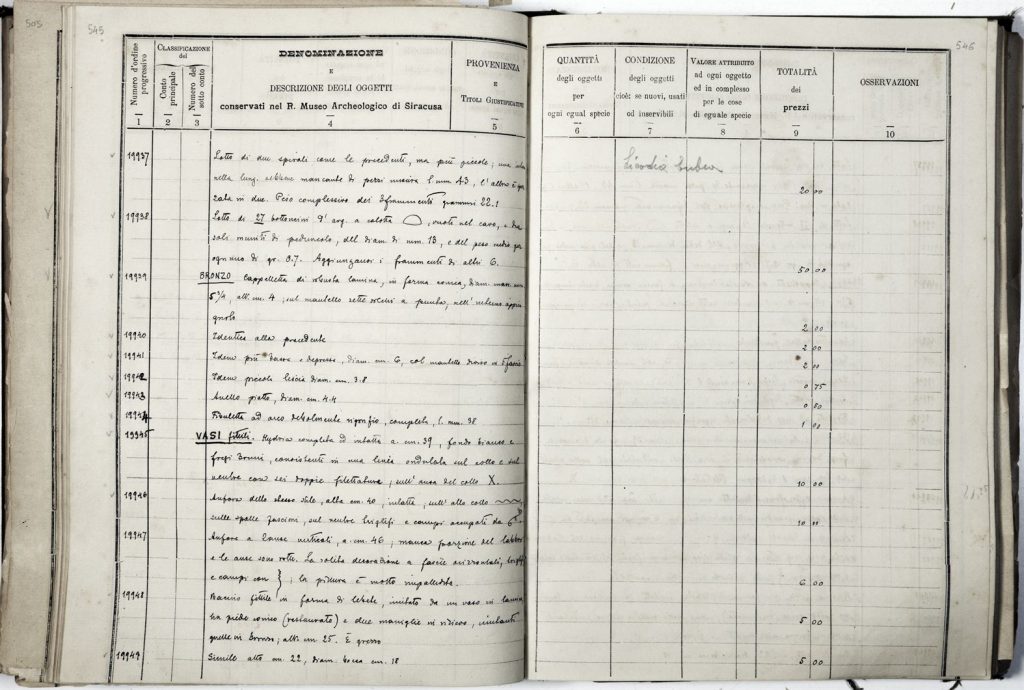 505
545
Numero d'ordine progressivo
CLASSIFICAZIONE del
Conto principale
Numero del sotto conto
DENOMINAZIONE
E
DESCRIZIONE DEGLI OGGETTI
conservati nel R. Museo Archeologico di Siracusa
PROVENIENZA
E
TITOLI GIUSTIFICATIVI
1 2 3 4 5
19937 Lotto di due spirali come le precedenti, ma più piccole; una
nella lung. sebbene mancante di pezzi misura l. mm 43, l'altra è
in due. Peso complessivo dei 3 frammenti grammi 22.1
19938 Lotto di 27 bottoncini d'arg. a calotta, vuote nel cavo, e
muniti di peduncolo, del diam di mm. 13, e del peso medio per
ognuno di gr. 0.7. Aggiunzansi i frammenti di altri 6.
19939 BRONZO Cappelletta di robusta lamina, in forma conica, diam. mass.
5 3/4, alt. cm. 4; sul mantello sette solchi a punta, nell'interno
19940 Identica alla precedente
19941 Idem più bassa e depressa, diam. cm. 6, col mantello diviso in 5 fascie
19942 Idem piccola liscia diam. cm. 3.8
19943 Anello piatto, diam. cm. 4.4
19944 Fibuletta ad arco debolmente rigonfio, completa, l. mm. 38
19945 VASI fittili. Hydria completa ed intatta a. cm. 39, fondo bianco e
fregi bruni, consistenti in una linea ondulata sul collo e sul
ventre con sei doppie filettature; sull'ansa del collo X.
19946 Anfora dello stesso stile, alta cm. 40, intatta, sull'alto collo
sulle spalle fascioni, sul ventre triglifi e campi occupati da
19947 Anfora a 2 anse verticali, a. cm. 46; manca porzione del labbro
e le anse sono rotte. La solita decorazione a fascie orizzontali,
e campi con; la pittura è molto impallidita.
19948 Bacino fittile in forma di lebete, imitato da un vaso in lamina
ha piede conico (restaurato) e due maniglie in rilievo, imitanti
quelle in bronzo; alt. cm. 25. È grosso
19949 Simile alto cm. 22, diam. bocca cm. 18
546
QUANTITÀ
degli oggetti
per
ogni egual specie
CONDIZIONE
degli oggetti
cioè: se nuovi, usati
od inservibili
VALORE ATTRIBUITO
ad ogni oggetto
ed in complesso
per le cose
di eguale specie
TOTALITÀ
dei
prezzi
OSSERVAZIONI
6 7 8 9 10
Licodia Eubea
20 00
50 00
2 00
2 00
2 00
0 75
0 80
1 00
10 00
10 00
6 00
5 00
5 00